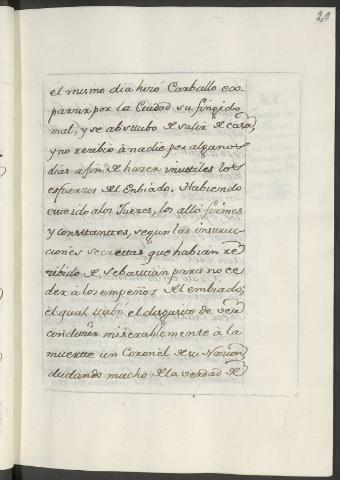 20
él mismo dia hizo Carballo es=
parzir por la Ciudad su fingido
mal, y se abstubo de salir de casa,
y no recibio à nadie por algunos
dias a fin de hazer inutiles los
esfuerzos del Enbiado. Habiendo
este ido a los Jueces, los alló firmes
y constantes, segun las instruc=
ciones secretas que habian re
cibido de Sebastian para no ce
der à los empeños del embiado;
el qual tubo el disgusto de ver
conducir miserablemente à la
muerte un Coronel de su Nacion
dudando mucho de la verdad de